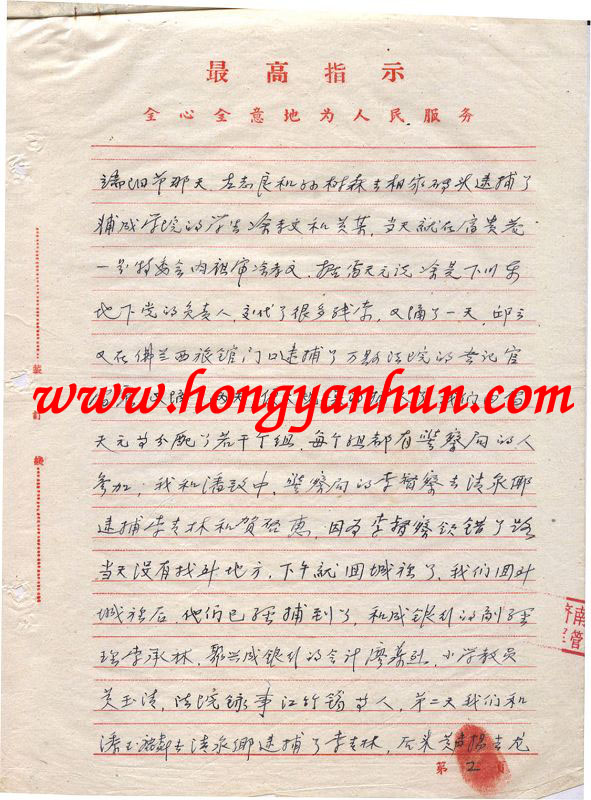 最高指示
全心全意地为人民服务
端阳节那天，左志良和孙树森去相家码头逮捕了
辅成学院的学生冷孝文和黄某，当天就在富贵巷
一号特委会内组审冷孝文，据雷天元说冷是下川东
地下党的负责人，交代了很多线索，又隔了一天，邱
又在佛兰西旅馆门口逮捕了万县法院的登记官
www.hongyanhun.com
天元等分配了若干个组，每个组都有警察局的人
参加，我和潘致中，警察局的李督察去清泉乡
逮捕李青林和贺启惠，因为李督察领错了路
当天没有找到地方，下午就回城里了，我们回到
城里后，他们已经捕到了，和成银行的副经
理李承林，聚兴成银行的会计廖
小学教员
黄玉清，法院录事江竹筠等人，第二天我们和
潘
去清泉乡逮捕了李青林，后来黄
去龙
装订线
第2页
济南
管